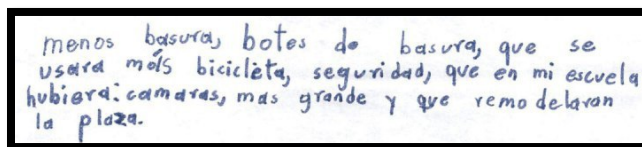 menos básura, botes de basura, que se
usara más bicicleta, seguridad, que en mi escuela
hubiera: camaras, mas grande y que remodelaran
la plaza.